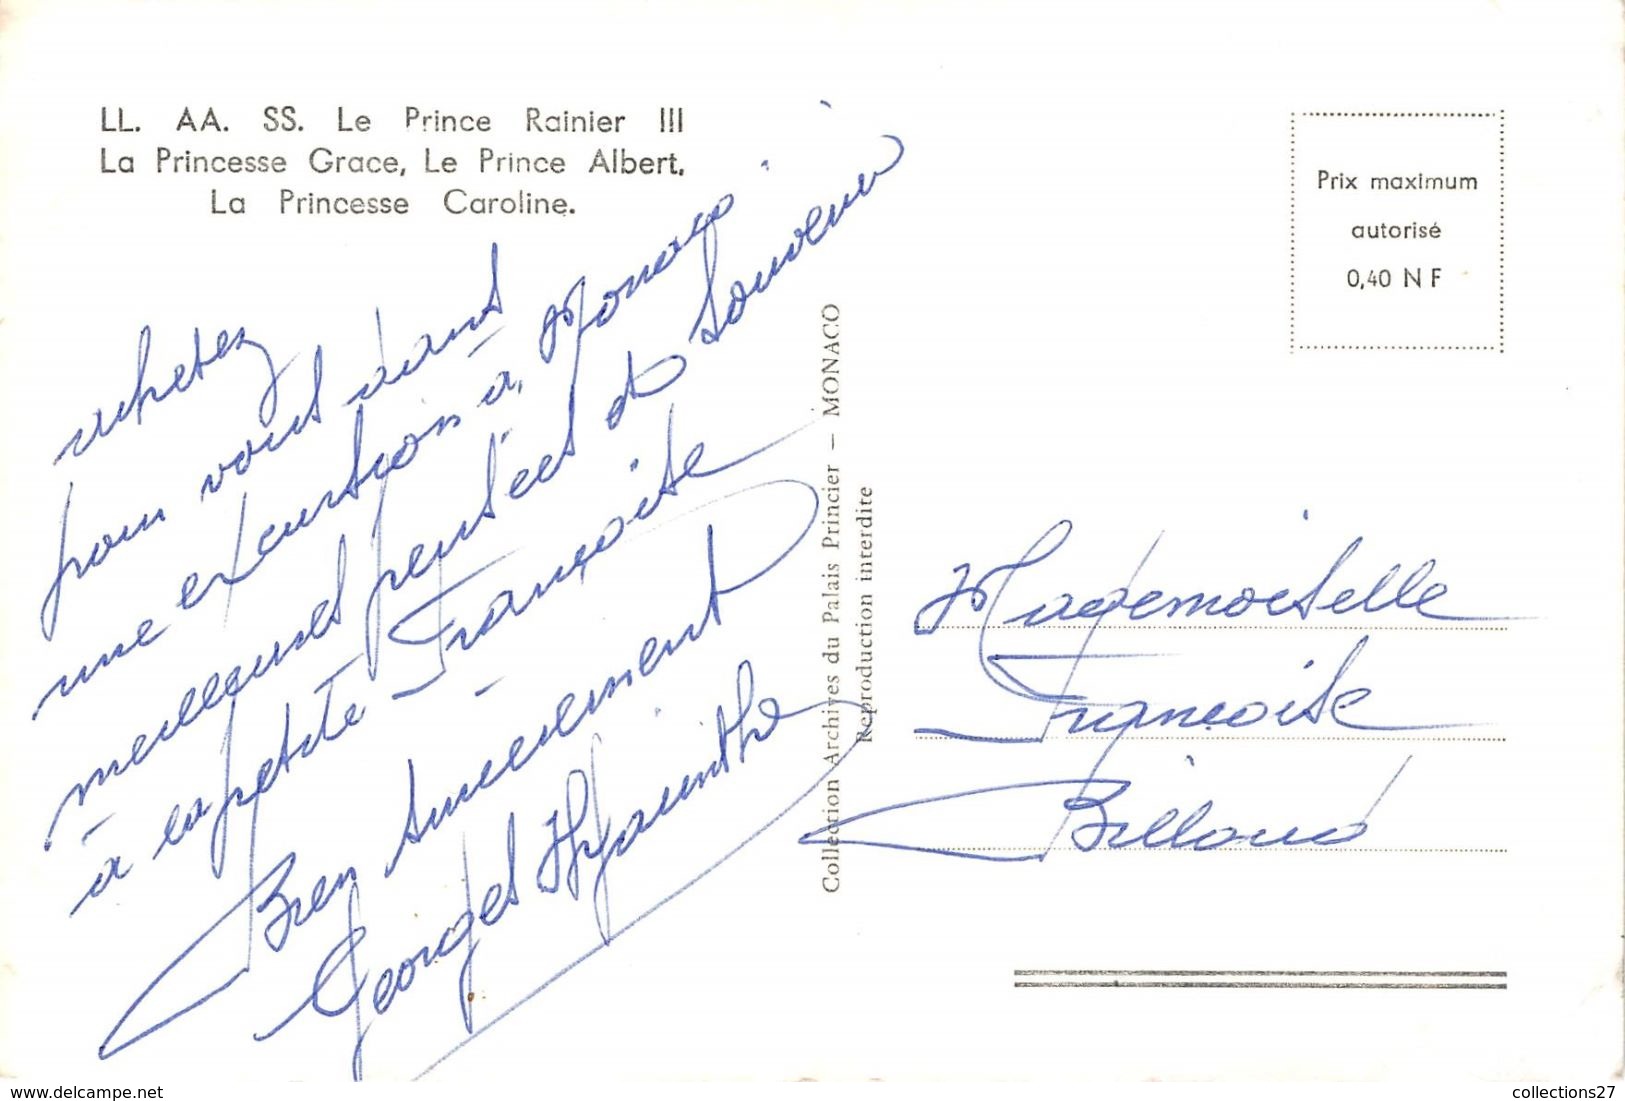 LL. AA. SS. Le Prince Rainier III
La Princesse Grace, Le Prince Albert,
La Princesse Caroline.
achetez
pour vous dans
une excursion à Monaco
meilleures pensées de souvenir
à la petite Françoise
Bien sincèrement
Georges Hyacinthe
Collection Archives du Palais Princier – MONACO
Reproduction interdite
Prix maximum
autorisé
0,40 NF
Mademoiselle
Françoise
Billoud
www.delcampe.net
collections27